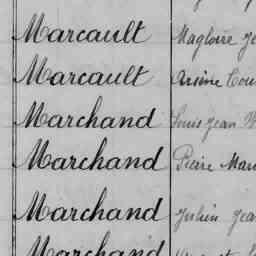 Marcault Magloire Je
Marcault Arsène Lou
Marchand Louis Jean
Marchand Pierre Mar
Marchand Julien Jea
Marchand